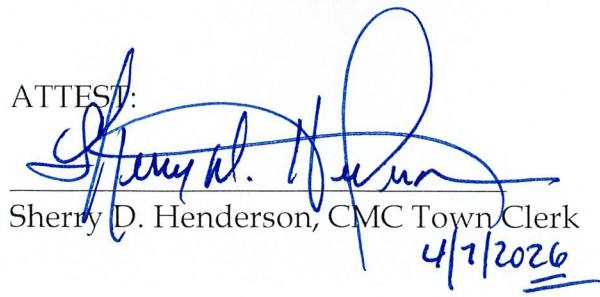 ATTEST:
Sherry D. Henderson
Sherry D. Henderson, CMC Town Clerk
4/7/2026